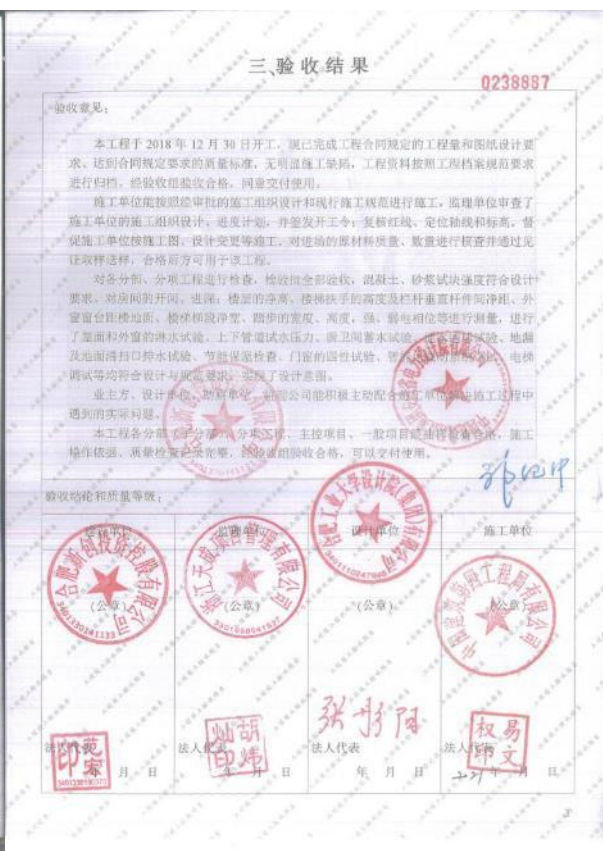 三、验收结果
0238887
验收意见：
本工程于 2018 年 12 月 30 日开工，现已完成工程合同规定的工程量和图纸设计要
求、达到合同规定要求的质量标准，无明显施工缺陷，工程资料按照工程档案规范要求
进行归档，经验收组验收合格，同意交付使用。
施工单位能按照经审批的施工组织设计和现行施工规范进行施工，监理单位审查了
施工单位的施工组织设计、进度计划，并签发开工令；复核红线、定位轴线和标高，督
促施工单位按施工图、设计变更等施工，对进场的原材料质量、数量进行核查并通过见
证取样送样，合格后方可用于该工程。
对各分部、分项工程进行检查，检验批全部验收，混凝土、砂浆试块强度符合设计
要求，对房间的开间、进深；楼层的净高、楼梯扶手的高度及栏杆垂直杆件间净距、外
窗窗台距楼地面、楼梯梯段净宽、踏步的宽度、高度，强、弱电相位等进行测量，进行
了屋面和外窗的淋水试验、上下管道试水压力、厨卫间蓄水试验、试验、地漏
及地面清扫口排水试验、节能保温检查、门窗的四性试验、电梯
调试等均符合设计与规范要求，实现了设计意图。
业主方、设计单位、勘察单位、公司能积极主动配合施工单位解决施工过程中
遇到的实际问题。
本工程各分部（子分部）、分项工程、主控项目、一般项目经检查合格，施工
操作依据、质量检查记录完整，经验收组验收合格，可以交付使用。
验收结论和质量等级：
建设单位 监理单位 设计单位 施工单位
合肥新创投资控股有限公司
浙江天成项目管理有限公司
合肥工业大学设计院(集团)有限公司
中国建筑第工程局有限公司
（公章） （公章） （公章） （公章）
张彤阳
法人代表 法人代表 法人代表 法人代表
胡炜灿印
易文权印
年 月 日 年 月 日 年 月 日 年 月 日
3